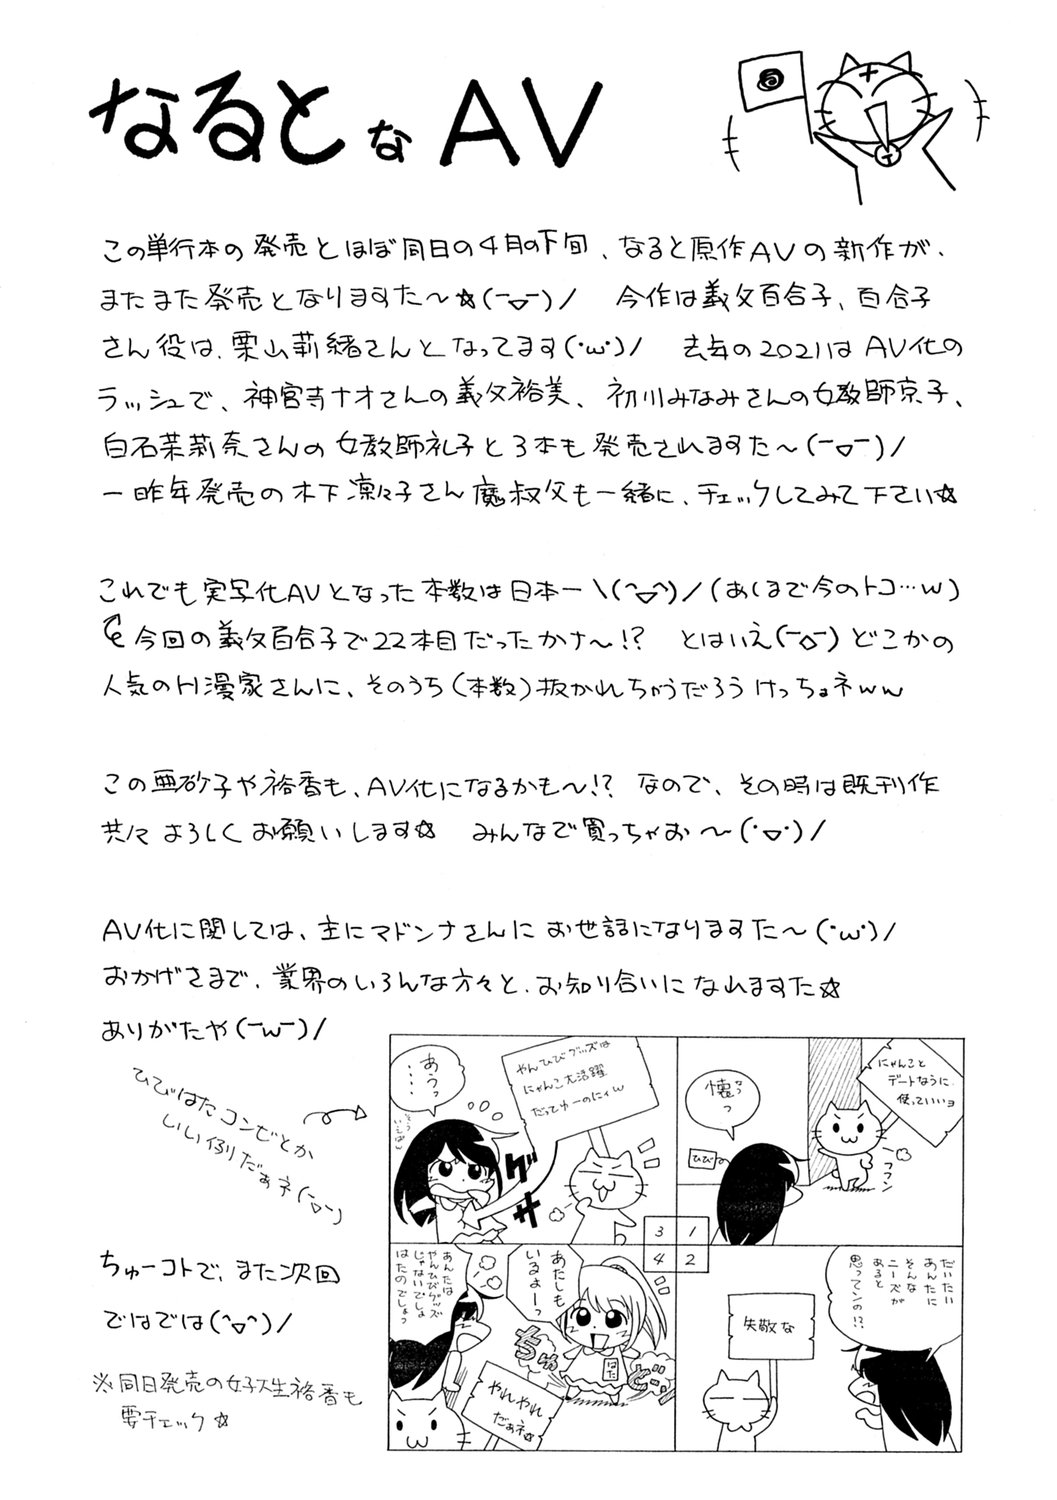 なるとなAV
この単行本の発売とほぼ同日の4月の下旬、なると原作AVの新作が、
またまた発売となりますた〜☆(￣▽￣)/ 今作は義父百合子、百合子
さん役は、栗山莉緒さんとなってます(・ω・)/ 去年の2021はAV化の
ラッシュで、神宮寺ナオさんの義父裕美、初川みなみさんの女教師京子、
白石茉莉奈さんの女教師礼子と3本も発売されますた〜(￣▽￣)/
一昨年発売の木下凛々子さん魔叔父も一緒に、チェックしてみて下さい☆
これでも実写化AVとなった本数は日本一\(^▽^)/(あくまで今のトコ…w)
今回の義父百合子で22本目だったかナ〜!? とはいえ(￣▽￣)どこかの
人気のH漫家さんに、そのうち(本数)抜かれちゃうだろうけっちょネww
この亜砂子や裕香も、AV化になるかも〜!? なので、その時は既刊作
共々よろしくお願いします☆ みんなで買っちゃお〜(・▽・)/
AV化に関しては、主にマドンナさんにお世話になりますた〜(・ω・)/
おかげさまで、業界のいろんな方々と、お知り合いになれますた☆
ありがたや(￣ω￣)/
ひびはたコンビとか
いい例だぁネ(￣▽￣)
ちゅーコトで、また次回
ではでは(^▽^)/
※同日発売の女子大生裕香も
要チェック☆
にゃんこと
デートなうに、
使っていいヨ
懐っっ
ひび
フフン
だいたい
あんたに
そんな
ニーズが
あると
思ってンの!?
失敬な
やんひびグッズは
にゃんこ大活躍
だってゆーのにィw
あうっ
・・・・
グサ
3 1
4 2
あたしも
いるよーっ
あんたは
やんひびグッズ
じゃないでしょ
はたのでしょっ
はた
やれやれ
だぁネ☆